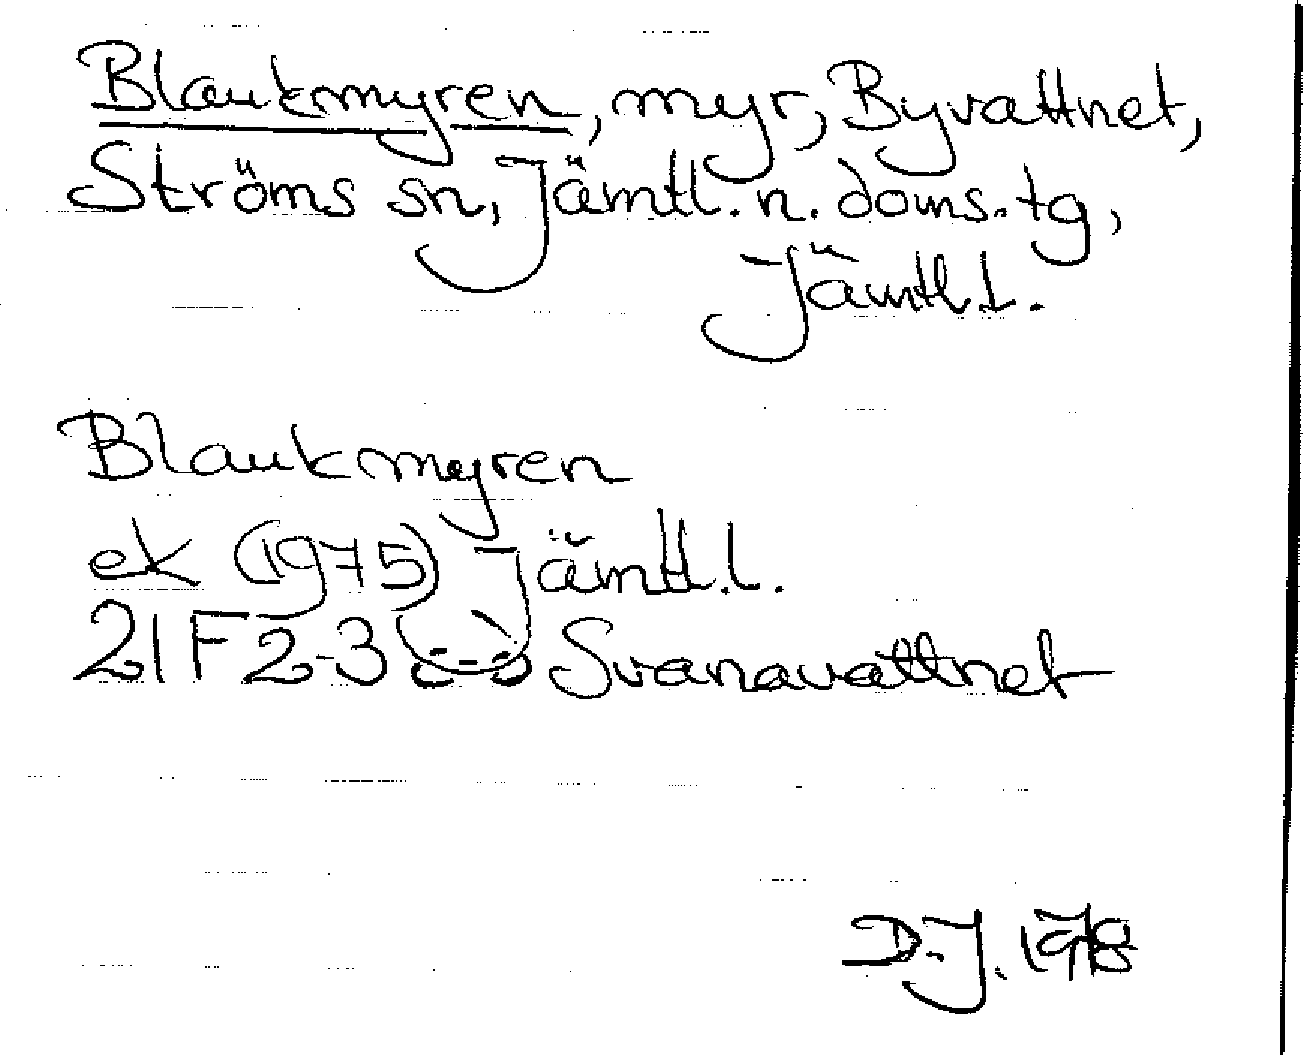 Blaukmyren, myr, Byvattnet,
Ströms sn, Jämtl. n. doms. tg,
Jämtl. l.
Blaukmyren
ek (1975) Jämtl. l.
21F 2-3 Svanavattnet
D.J. 1978